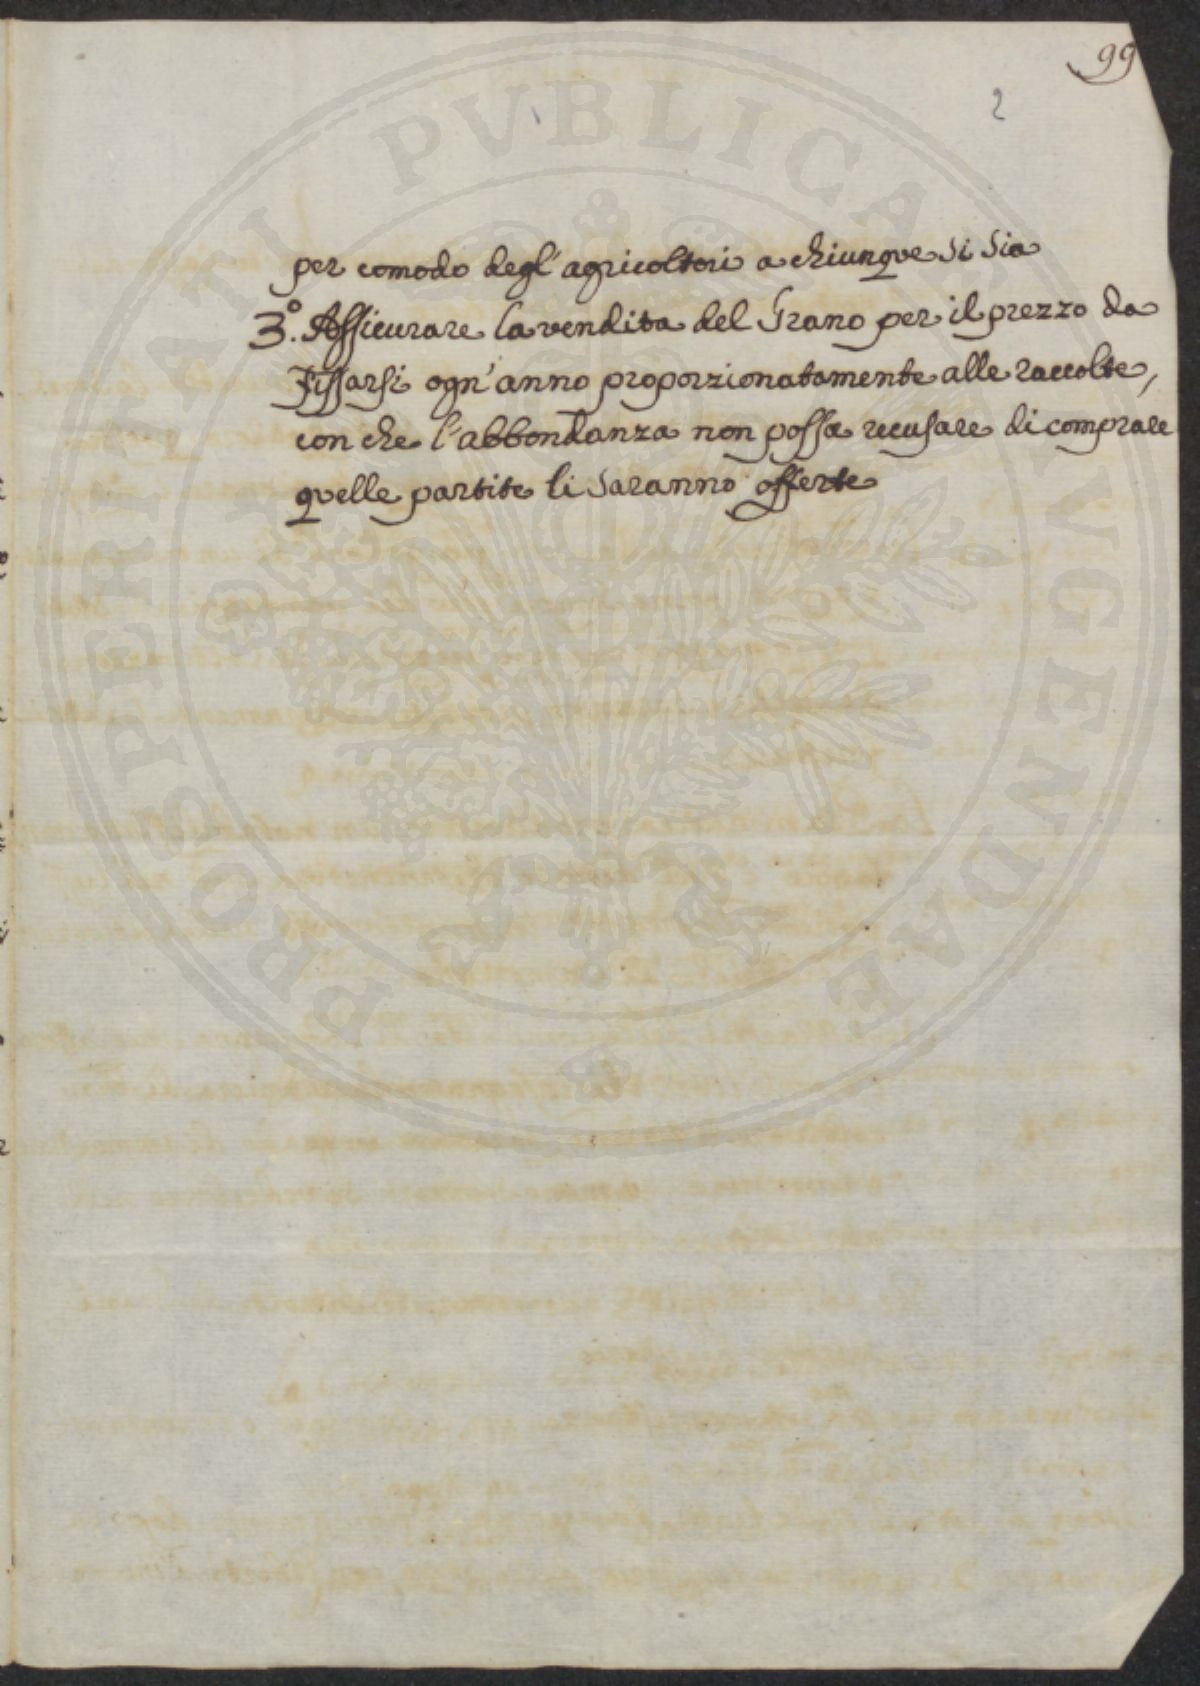 99
2
PROSPERITATI PVBLICAE AVGENDAE
per comodo degl' agricoltori a chiunque si sia
3.° Assicurare la vendita del Grano per il prezzo da
fissarsi ogn' anno proporzionatamente alle raccolte,
con che l'abbondanza non possa recusare di comprare
quelle partite li saranno offerte